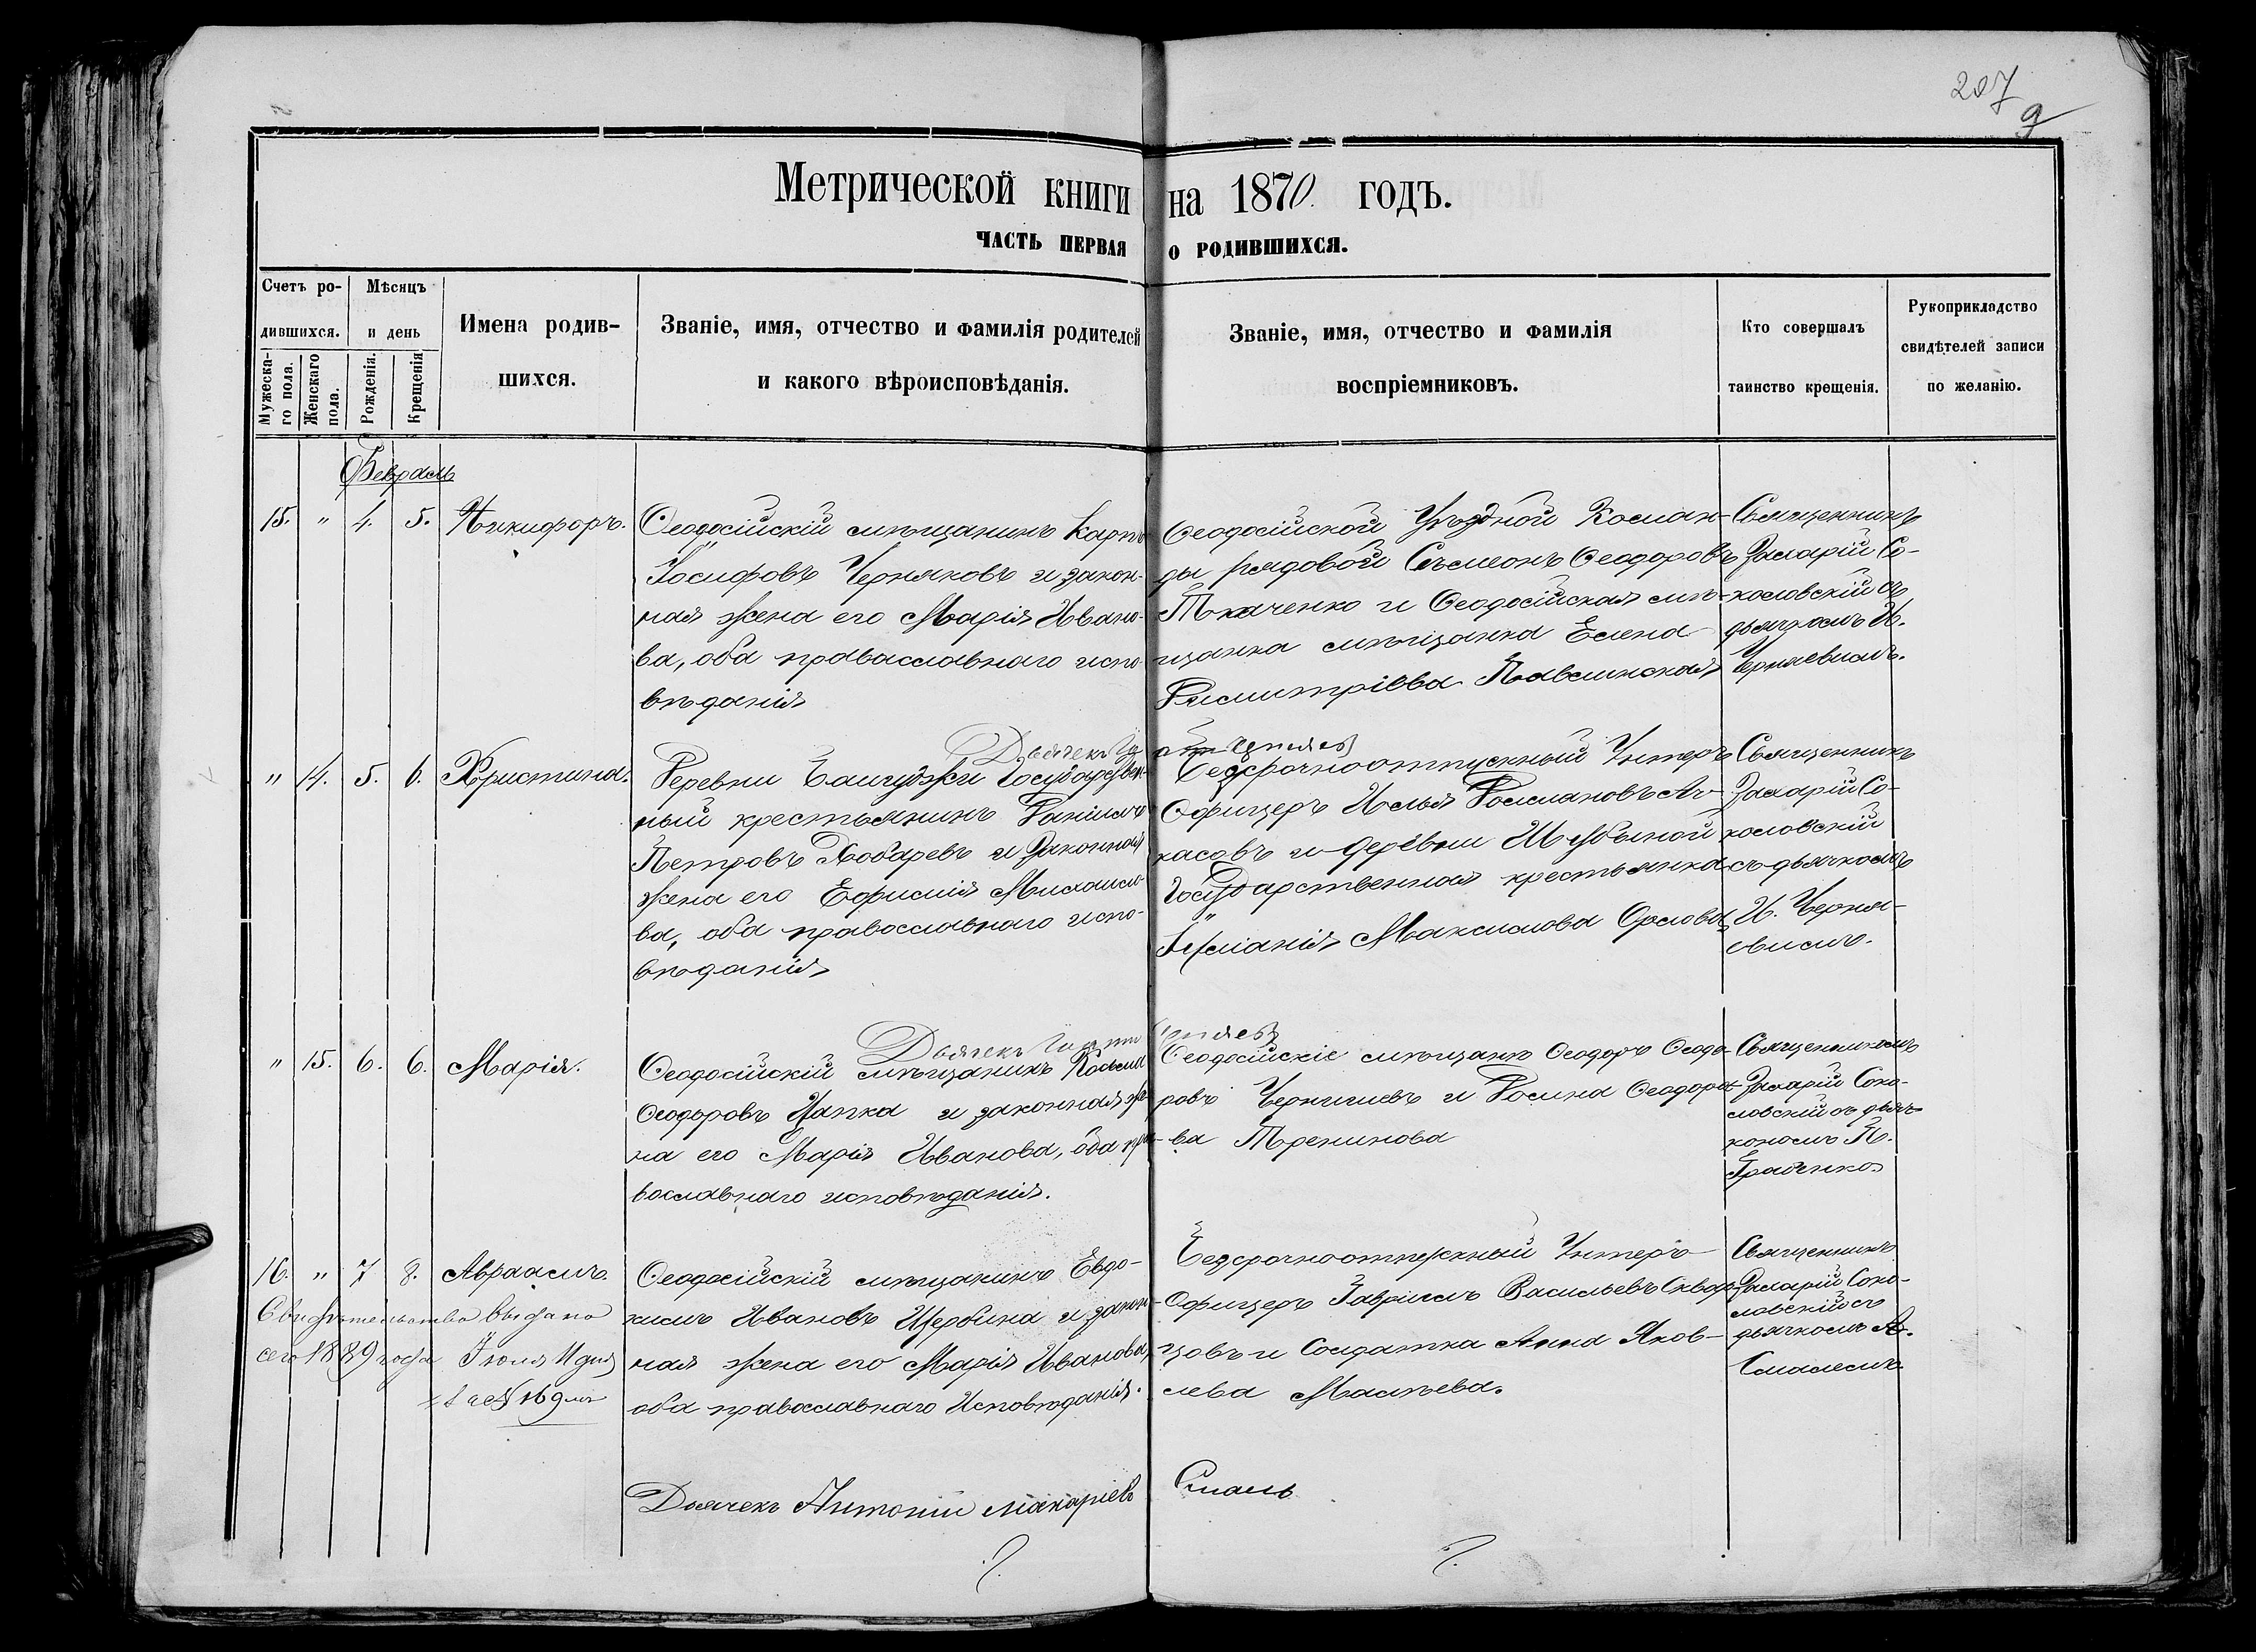 207
9
Метрической книги на 1870 годъ.
ЧАСТЬ ПЕРВАЯ о РОДИВШИХСЯ.
Счетъ ро-
дившихся.
Мужеска-
го пола.
Женскаго
пола.
Мѣсяцъ
и день
Рожденія.
Крещенія
Имена родив-
шихся.
Званіе, имя, отчество и фамилія родителей
и какого вѣроисповѣданія.
Званіе, имя, отчество и фамилія
воспріемниковъ.
Кто совершалъ
таинство крещенія.
Рукоприкладство
свидѣтелей записи
по желанію.
Февраль
15. " 4. 5. Никифоръ.
Ѳеодосійскій мѣщанинъ Карпъ
Іосифовъ Черняковъ и закон-
ная жена его Марія Ивано-
ва, оба православнаго испо-
вѣданія
Ѳеодосійской Уѣздной Коман-
ды рядовой Сѵмеонъ Ѳеодоровъ
Ткаченко и Ѳеодосійская мѣ-
щанка мѣщанка Елена
Димитріева Павлинская
Священникъ
Захарій Со-
коловскій съ
дьячкомъ И.
Черняевымъ.
Дьячекъ
" 14. 5. 6. Христина.
Деревни Государствен-
ный крестьянинъ Даніилъ
Петровъ и Законная
жена его Ефимія Михаило-
ва, оба православнаго испо-
вѣданія
Безсрочноотпускный Унтеръ
Офицеръ Илья
касовъ и деревни
Государственная крестьянка
Максимова Орлова
Священникъ
Захарій Со-
коловскій
съ дьячкомъ
И. Черня-
евымъ.
Дьячекъ
" 15. 6. 6. Марія.
Ѳеодосійскій мѣщанинъ Косьма
Ѳеодоровъ Цапка и законная же-
на его Марія Иванова, оба пра-
вославнаго исповѣданія.
Ѳеодосійскіе мѣщане Ѳеодоръ Ѳеодо-
ровъ и Домна Ѳеодоро-
ва
Священникомъ
Захарій Соко-
ловскій съ дья-
кономъ П.
16. " 7 8. Авраамъ.
Свидѣтельство выдано
сего 1889 года Іюля 11 дня
за № 169
Ѳеодосійскій мѣщанинъ Евдо-
кимъ Ивановъ Щербина и закон-
ная жена его Марія Иванова,
оба православнаго Исповѣданія.
Безсрочноотпускный Унтеръ
Офицеръ Гавріилъ Васильевъ Сквор-
цовъ и Солдатка Анна Яков-
лева
Священникъ
Захарій Соко-
ловскій съ
дьячкомъ А.
Смалемъ
Дьячекъ Антоній Макаріевъ Смаль